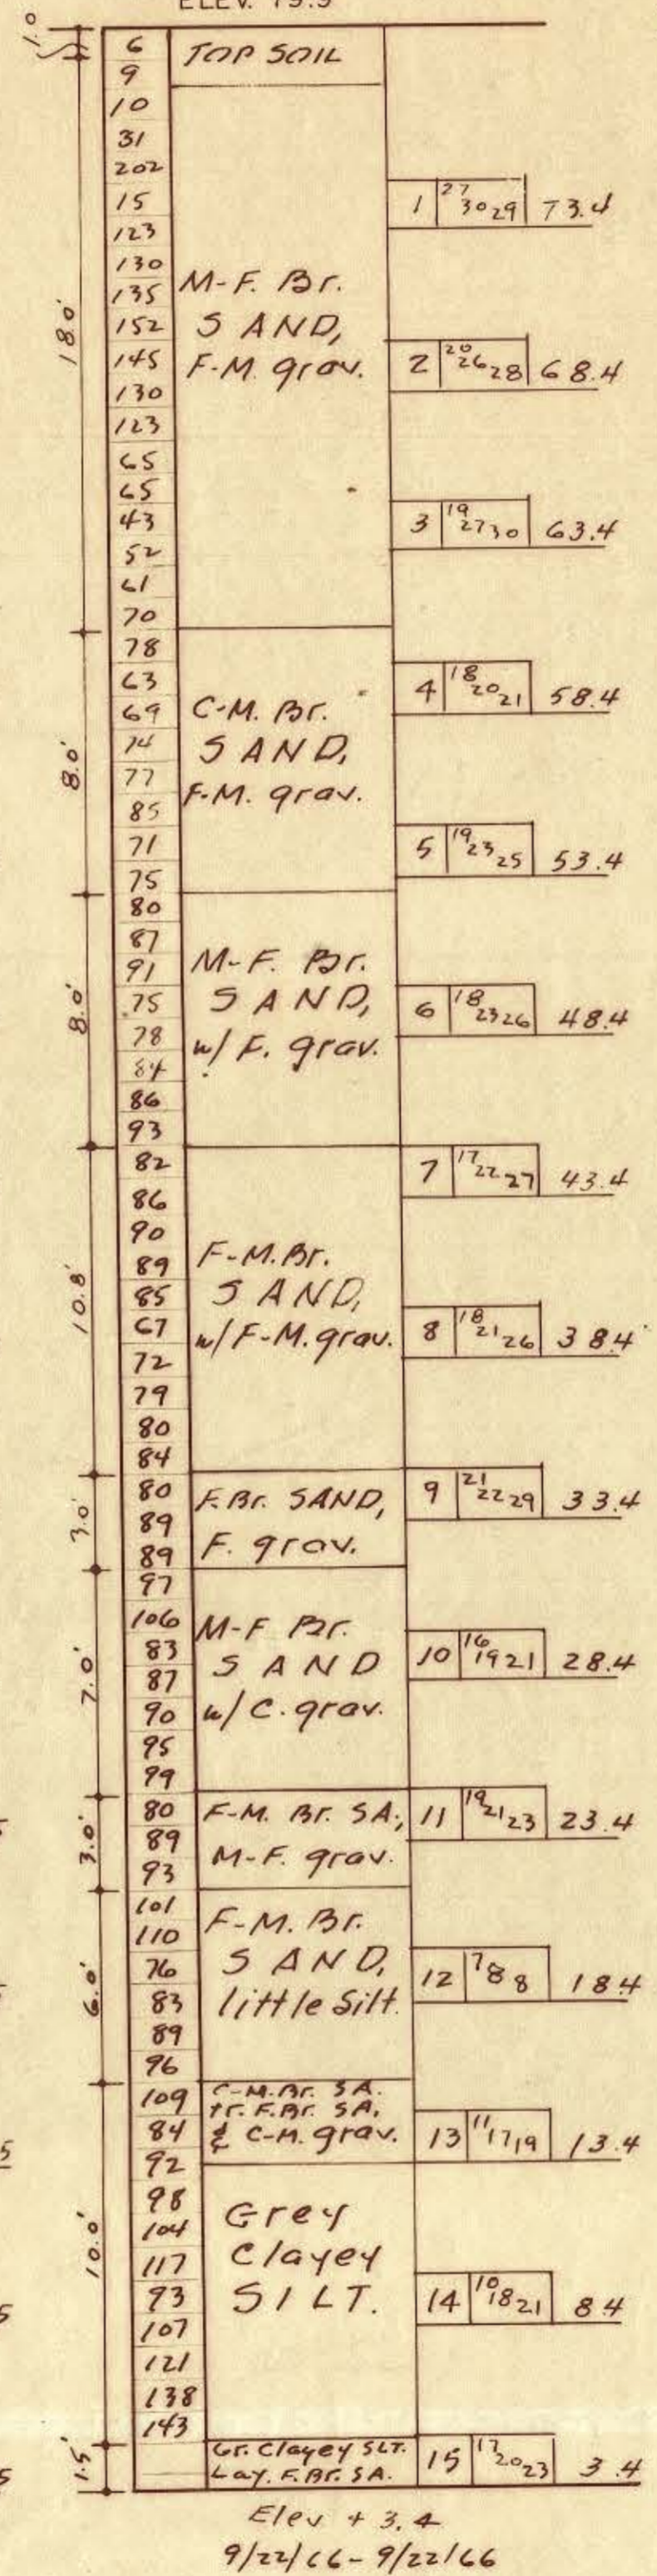 ELEV. 79.9
1.0
18.0'
8.0'
8.0'
10.8'
3.0'
7.0'
3.0'
6.0'
10.0'
1.5'
6
9
10
31
202
15
123
130
135
152
145
130
123
65
65
43
52
61
70
78
63
69
74
77
85
71
75
80
87
91
75
78
84
86
93
82
86
90
89
85
67
72
79
80
84
80
89
89
97
106
83
87
90
95
99
80
89
93
101
110
76
83
89
96
109
84
92
98
104
117
93
107
121
138
143
TOP SOIL
M-F. Br.
SAND,
F-M. grav.
C-M. Br.
SAND,
F-M. grav.
M-F. Br.
SAND,
w/ F. grav.
F-M. Br.
SAND,
w/ F-M. grav.
F. Br. SAND,
F. grav.
M-F Br.
SAND
w/ C. grav.
F-M. Br. SA.,
M-F. grav.
F-M. Br.
SAND,
little Silt.
C-M. Br. SA.
tr. F. Br. SA,
& C-M. grav.
Grey
Clayey
SILT.
Gr. Clayey SLT.
Lay. F. Br. SA.
1 27 30 29 73.4
2 20 26 28 68.4
3 19 27 30 63.4
4 18 20 21 58.4
5 19 23 25 53.4
6 18 23 26 48.4
7 17 22 27 43.4
8 18 21 26 38.4
9 21 22 29 33.4
10 16 19 21 28.4
11 19 21 23 23.4
12 7 8 8 18.4
13 11 17 19 13.4
14 10 18 21 8.4
15 17 20 23 3.4
Elev + 3.4
9/22/66 - 9/22/66